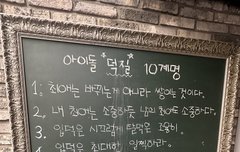 아이돌 "덕질" 10계명
1. 최애는 바뀌는게 아니라 쌓이는 것이다.
2. 내 최애 소중하듯 남의 최애도 소중하다.
3. 일덕은 시끄럽게 탈덕은 조용히.
4. 입덕은 최대한